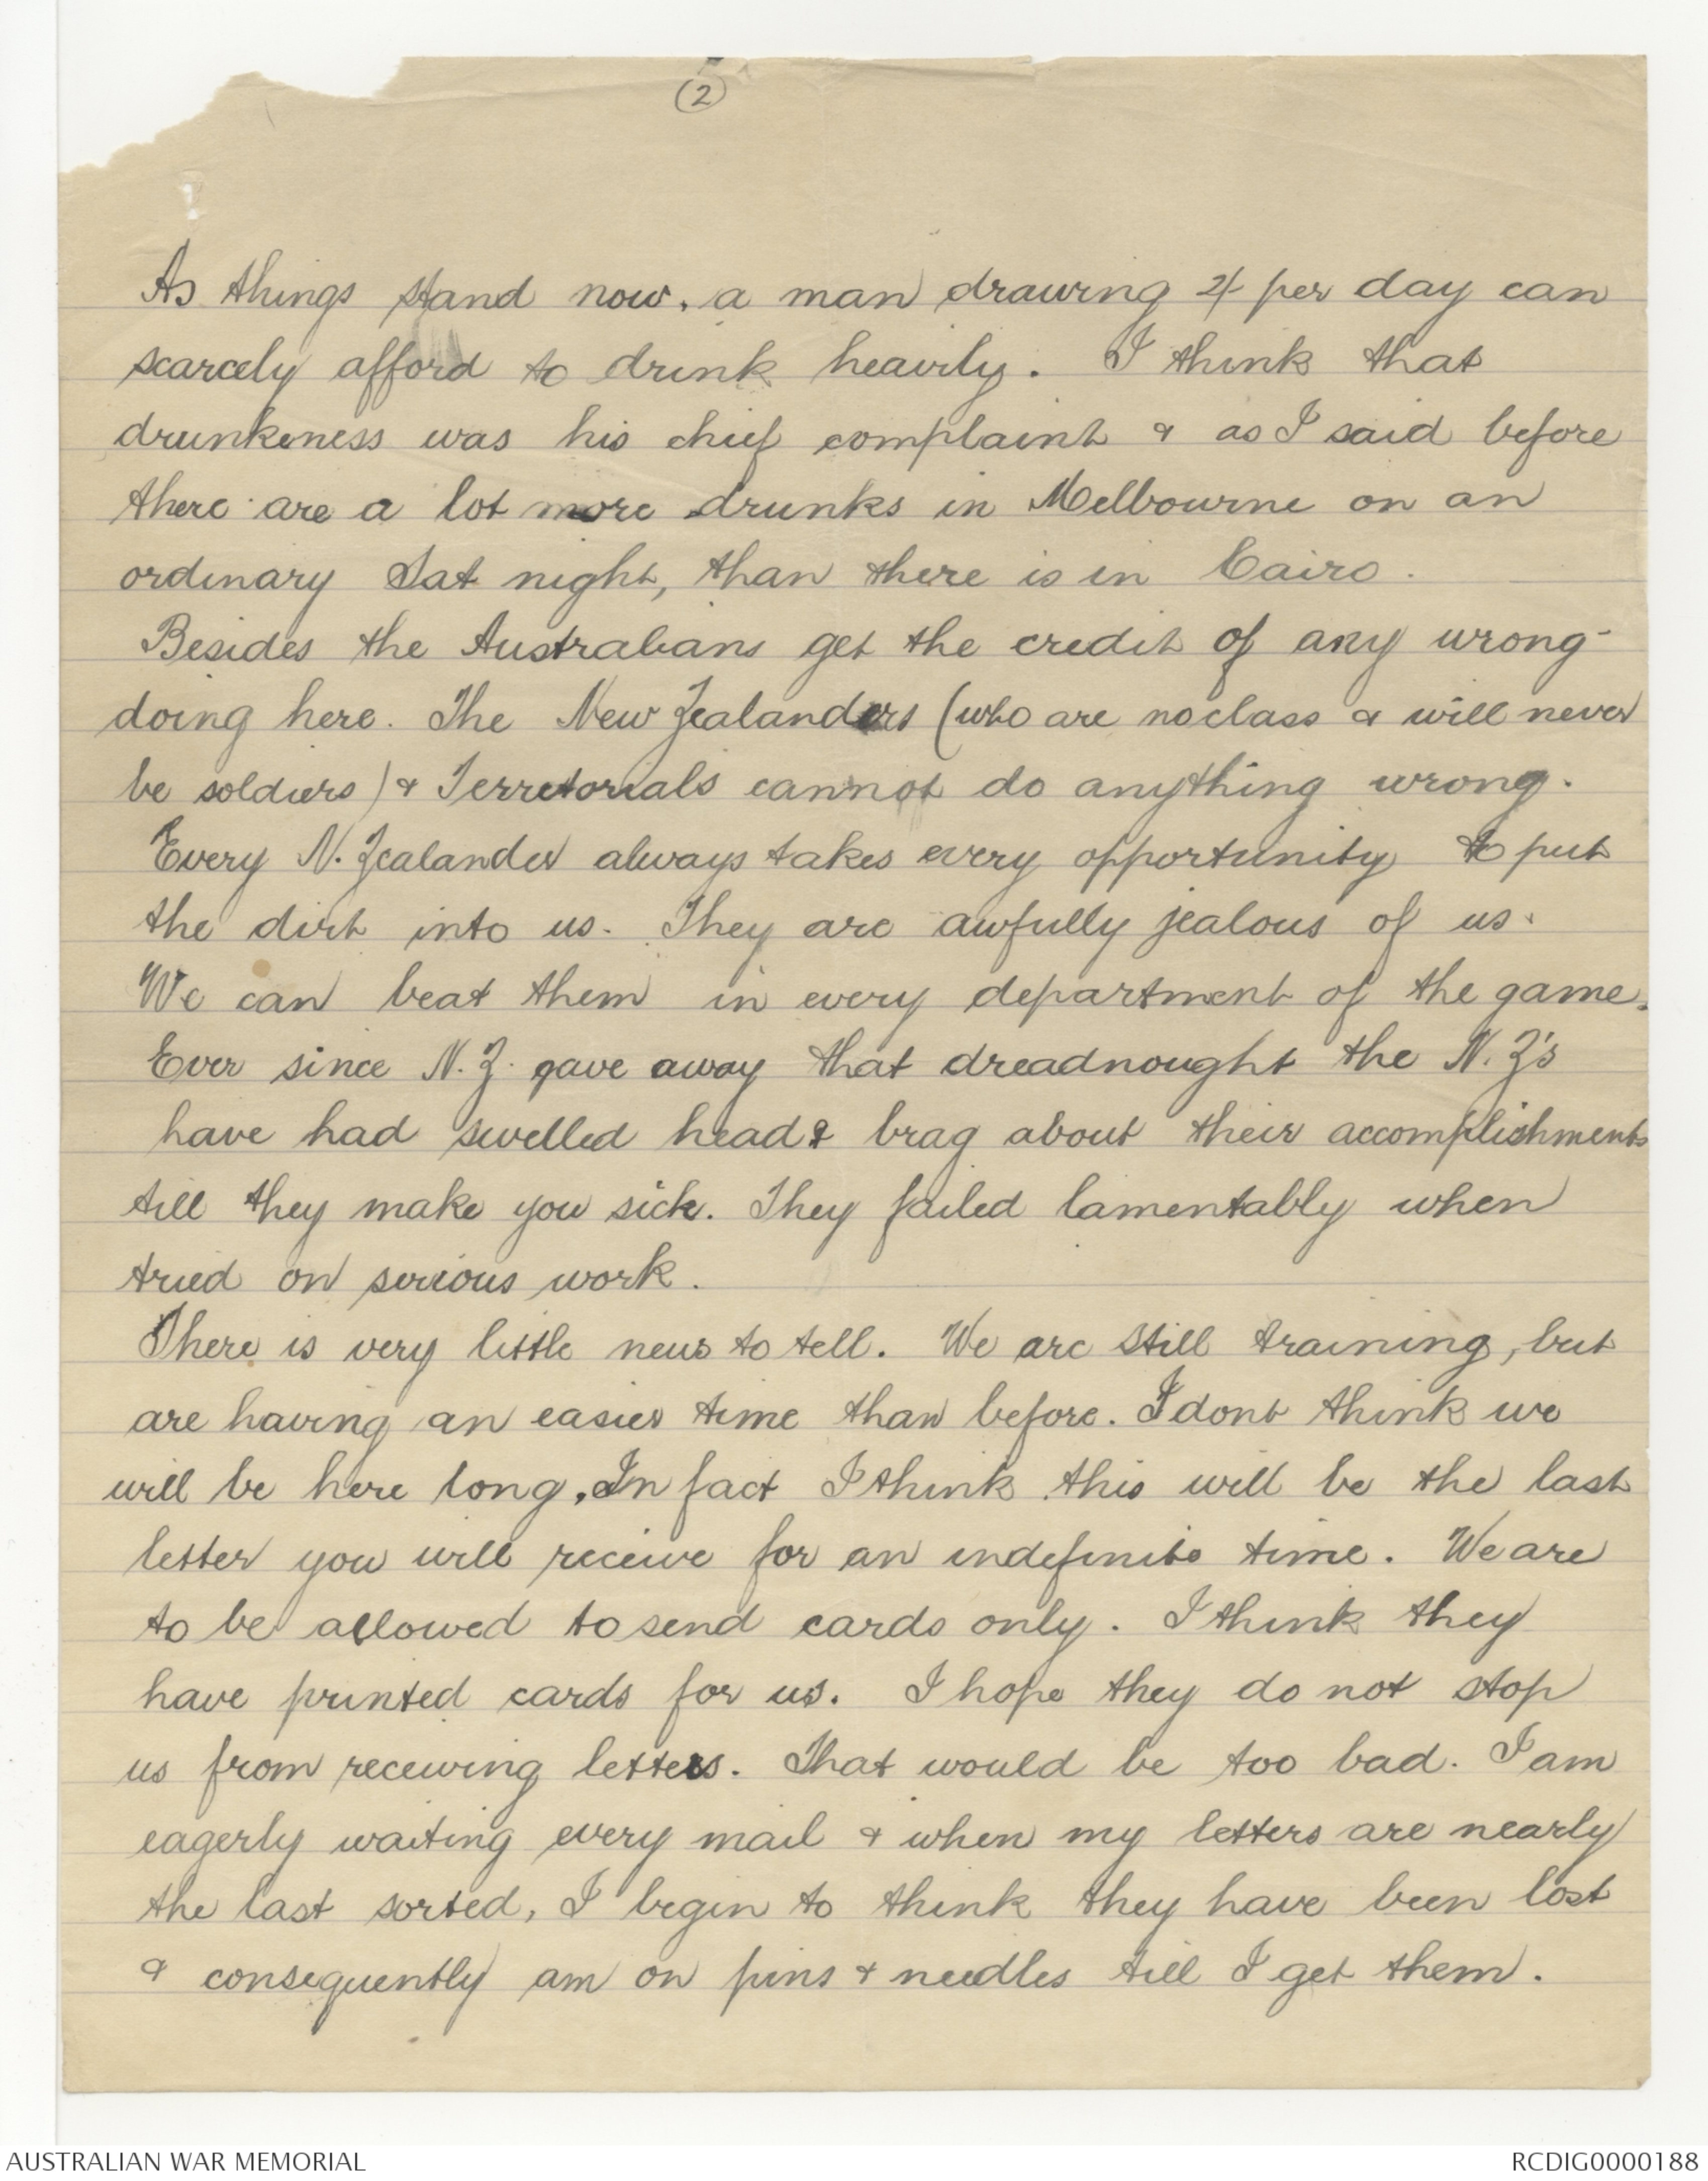 (2)
As things stand now, a man drawing 2/- per day can
scarcely afford to drink heavily. I think that
drunkeness was his chief complaint & as I said before
there are a lot more drunks in Melbourne on an
ordinary Sat night, than there is in Cairo.
Besides the Australians get the credit of any wrong-
doing here. The New Zealanders (who are no class & will never
be soldiers) & Terretorials cannot do anything wrong.
Every N. Zealander always takes every opportunity to put
the dirt into us. They are awfully jealous of us.
We can beat them in every department of the game.
Ever since N.Z. gave away that dreadnought the N.Z's
have had swelled head & brag about their accomplishments
till they make you sick. They failed lamentably when
tried on serious work.
There is very little news to tell. We are still training, but
are having an easier time than before. I dont think we
will be here long, In fact I think this will be the last
letter you will receive for an indefinite time. We are
to be allowed to send cards only. I think they
have printed cards for us. I hope they do not stop
us from receiving letters. That would be too bad. I am
eagerly waiting every mail & when my letters are nearly
the last sorted, I begin to think they have been lost
& consequently am on pins & needles till I get them.
AUSTRALIAN WAR MEMORIAL
RCDIG0000188